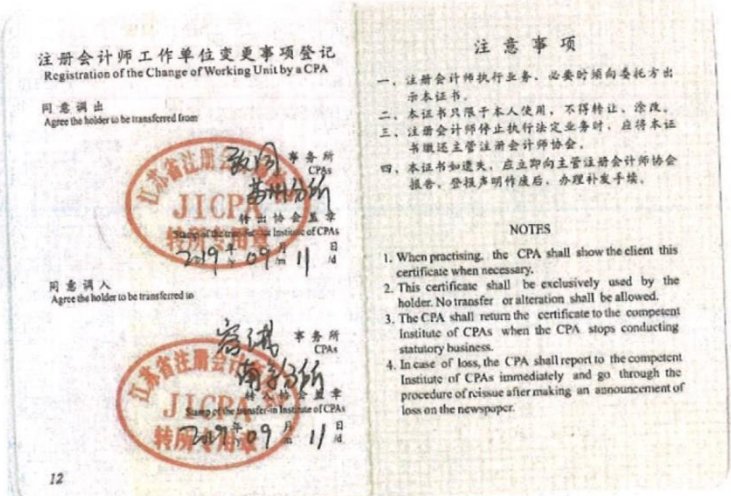 注册会计师工作单位变更事项登记
Registration of the Change of Working Unit by a CPA
同意调出
Agree the holder to be transferred from
事务所
CPAs
苏州分所
江苏省注册会
JICPA
转所专用章
转出协会盖章
Stamp of the transfer-out Institute of CPAs
2019年09月11日
/y /m /d
同意调入
Agree the holder to be transferred to
事务所
CPAs
分所
江苏省注册会
JICPA
转所专用章
转入协会盖章
Stamp of the transfer-in Institute of CPAs
2019年09月11日
/y /m /d
12
注意事项
一、注册会计师执行业务，必要时须向委托方出
示本证书。
二、本证书只限于本人使用，不得转让、涂改。
三、注册会计师停止执行法定业务时，应将本证
书缴还主管注册会计师协会。
四、本证书如遗失，应立即向主管注册会计师协会
报告，登报声明作废后，办理补发手续。
NOTES
1. When practising, the CPA shall show the client this
certificate when necessary.
2. This certificate shall be exclusively used by the
holder. No transfer or alteration shall be allowed.
3. The CPA shall return the certificate to the competent
Institute of CPAs when the CPA stops conducting
statutory business.
4. In case of loss, the CPA shall report to the competent
Institute of CPAs immediately and go through the
procedure of reissue after making an announcement of
loss on the newspaper.